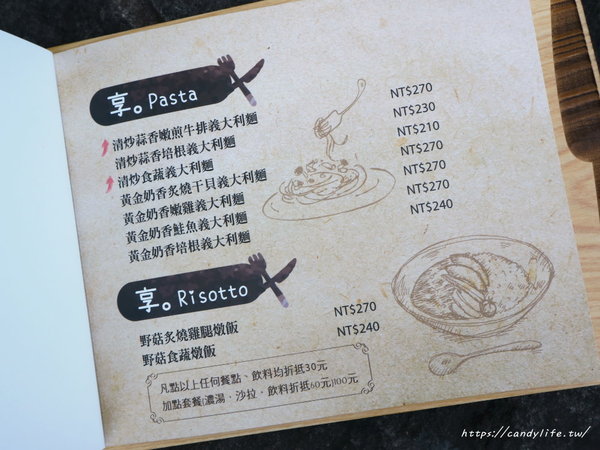 享。Pasta
清炒蒜香嫩煎牛排義大利麵 NT$270
清炒蒜香培根義大利麵 NT$230
清炒食蔬義大利麵 NT$210
黃金奶香炙燒干貝義大利麵 NT$270
黃金奶香嫩雞義大利麵 NT$270
黃金奶香鮭魚義大利麵 NT$270
黃金奶香培根義大利麵 NT$240
享。Risotto
野菇炙燒雞腿燉飯 NT$270
野菇食蔬燉飯 NT$240
凡點以上任何餐點、飲料均折抵30元
加點套餐(濃湯．沙拉．飲料折抵60元)100元
https://candylife.tw/